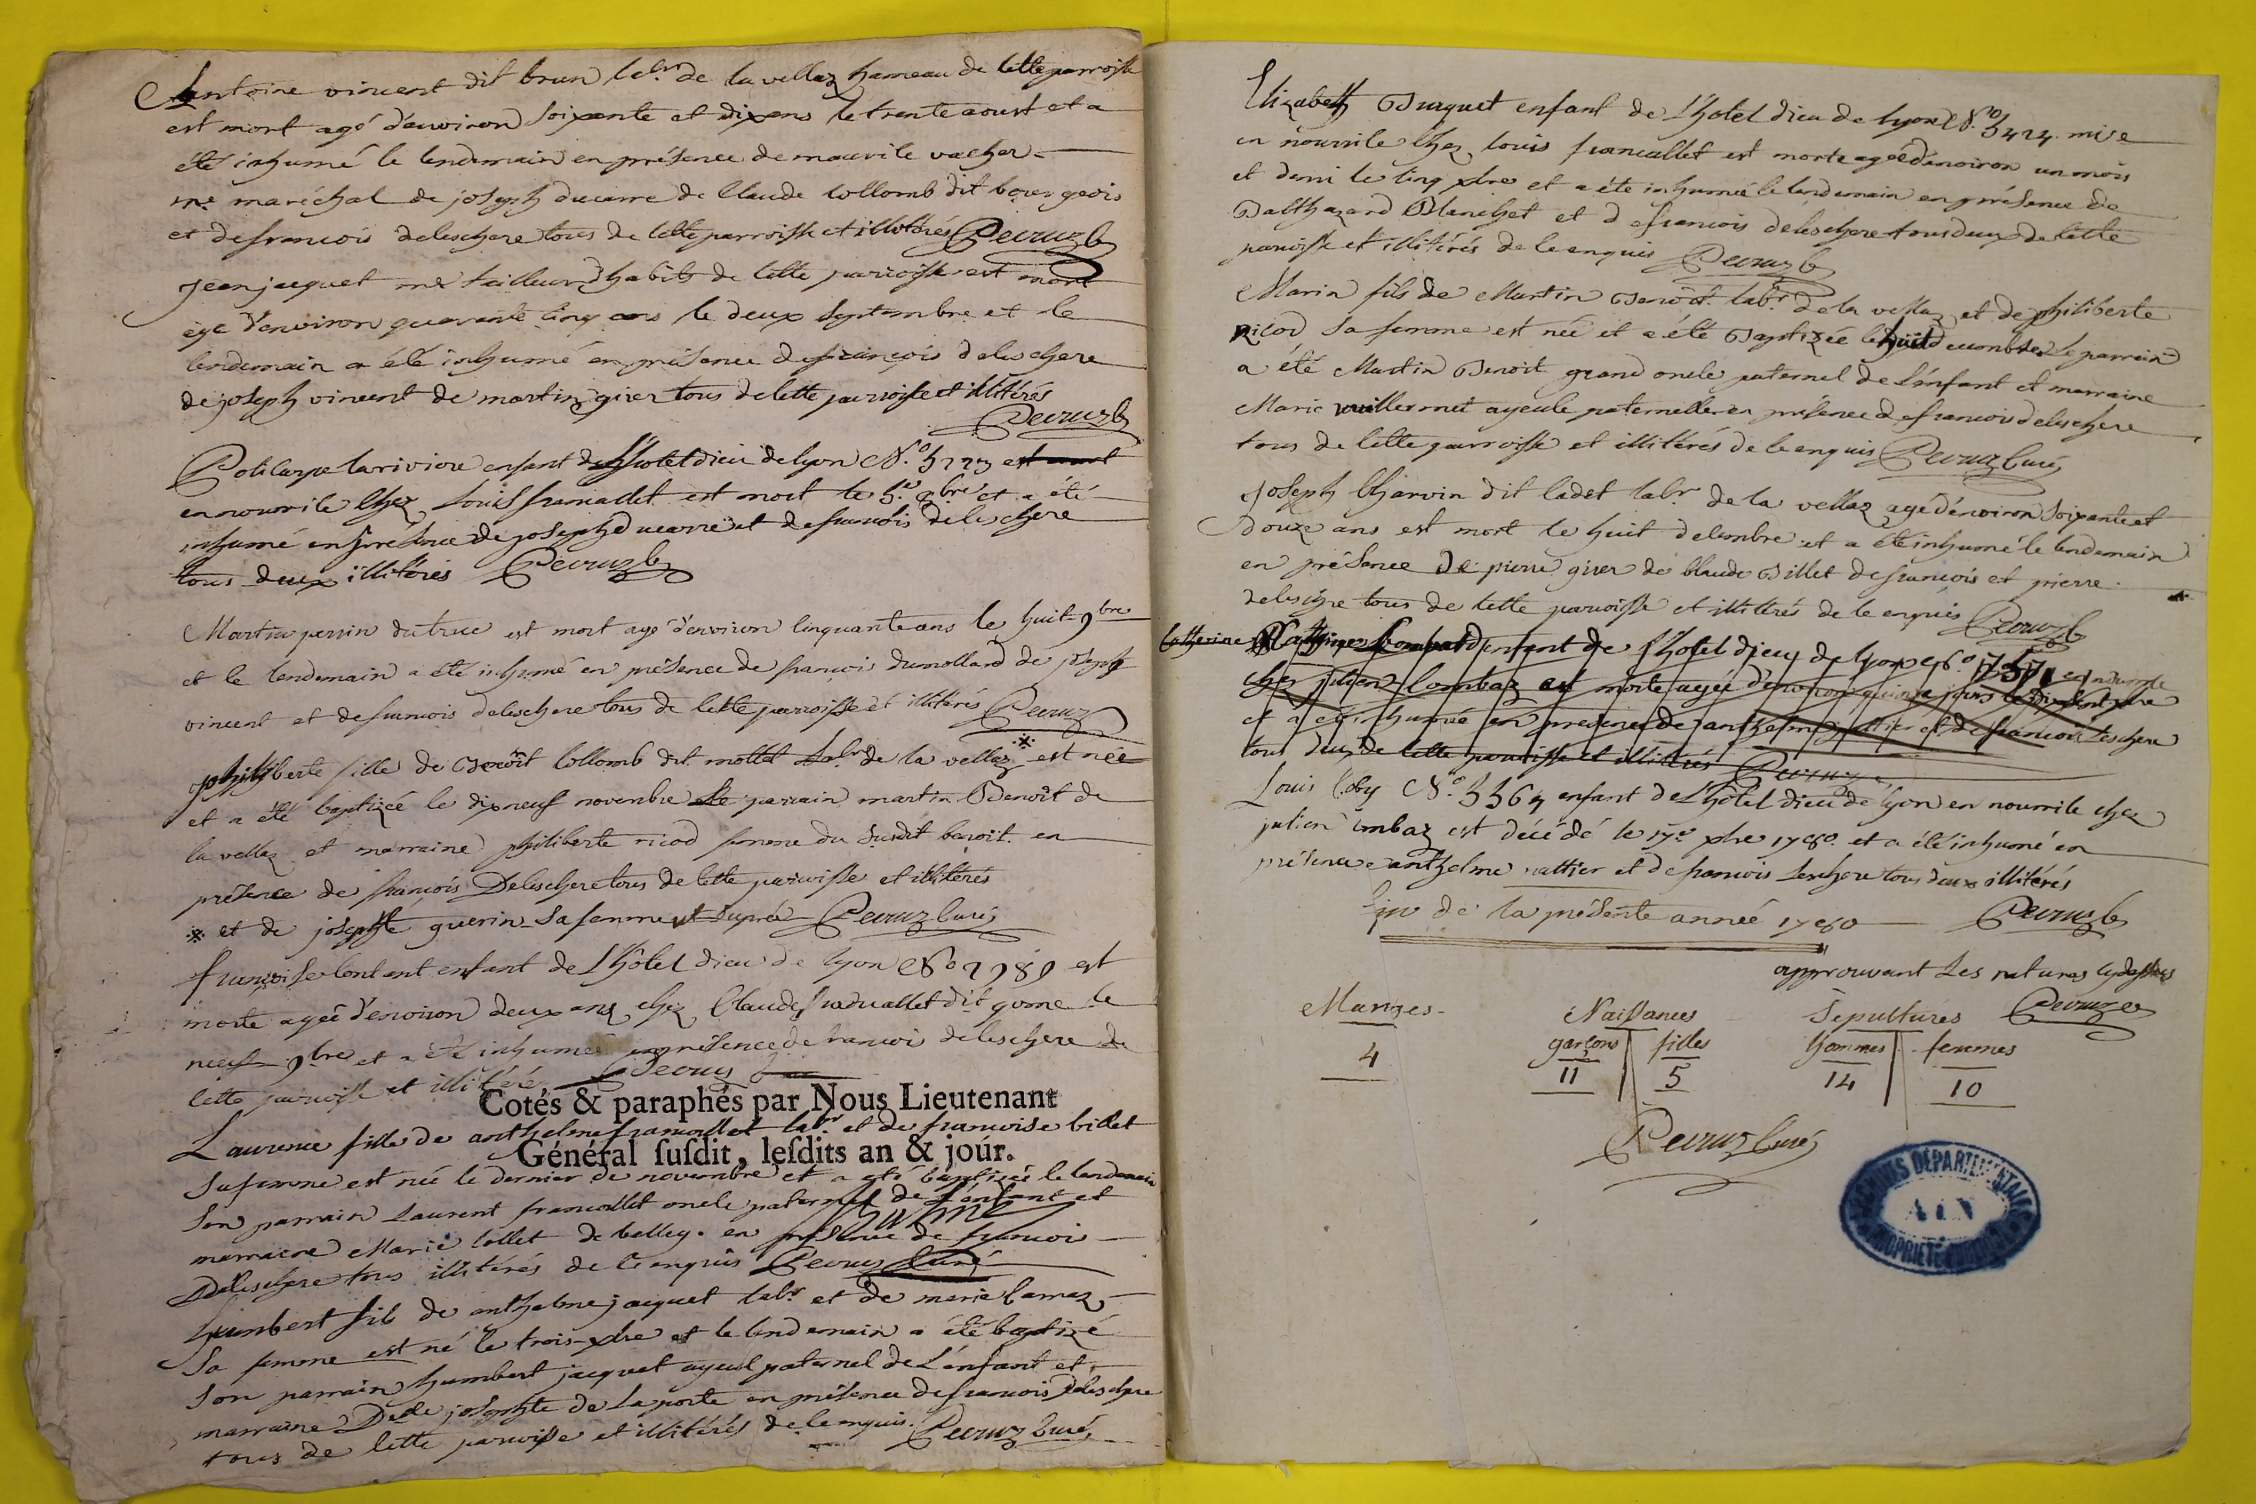 Antoine vincent dit brun lab.r de la vellaz hameau de cette parroisse
est mort agé d'environ soixante et dix ans le trente aoust et a
été inhumé le lendemain en présence de maurile vacher
m.e maréchal de joseph ducarre de Claude Collomb dit bourgeois
et de francois deleschere tous de cette parroisse et illitérés Pecruz C.
Jean jacquet m.e tailleur d'habits de cette parroisse est mort
age d'environ quarante cinq ans le deux septembre et le
lendemain a été inhumé en présence de françois deleschere
de joseph vincent de martin girer tous de cette parroisse et illitérés
Pecruz C.
Policarpe lariviere enfant de l'hotel dieu de lyon N.o est mort
en nourrice chez Louis francallet est mort le 5.e 8.bre et a été
inhumé en présence de joseph ducarre et de francois deleschere
tous deux illitérés Pecruz C.
Martin perrin dutruc est mort agé d'environ cinquante ans le huit 9.bre
et le lendemain a été inhumé en présence de francois dumollard de joseph
vincent et de francois deleschere tous de cette parroisse et illitérés Pecruz
philiberte fille de Benoit Collomb dit mottet Lab.r de la vellaz ※ est née
et a été baptizée le dix neuf novembre Le parrain martin Benoît de
la vellaz et marraine philiberte ricod femme du susdit benoit en
présence de françois Deleschere tous de cette parroisse et illitérés
※ et de josephte guerin sa femme Pecruz Curé
francoise Contant enfant de L'hôtel dieu de lyon N.o 2989 est
morte agée d'environ deux ans chez Claude francallet dit gome le
neuf 9.bre et a été inhumée en présence de francois deleschere de
cette parroisse et illitéré Pecruz C.
Cotés & paraphés par Nous Lieutenant
Laurence fille de anthelme francallet lab.r et de francoise billet
Général susdit, lesdits an & jour.
sa femme est née le dernier de novembre et a été baptizée le lendemain
son parrain Laurent francallet oncle paternel de L'enfant et
marraine Marie Collet de belley en présence de francois
Deleschere tous illitérés de ce enquis Pecruz Curé
humbert fils de anthelme jacquet lab.r et de marie Carraz
sa femme est né le trois xbre et le lendemain a été baptizé
son parrain humbert jacquet ayeul paternel de L'enfant et
marraine D.elle josephte de La porte en présence de francois deleschere
tous de cette parroisse et illitérés de ce enquis. Pecruz Curé
Elizabeth Burquet enfant de L'hotel dieu de lyon N.o 3424 mise
en nourrice chez Louis francallet est morte agée d'environ un mois
et demi le cinq xbre et a été inhumée le lendemain en présence de
Balthazard Blanchet et de francois deleschere tous deux de cette
paroisse et illitérés de ce enquis Pecruz C.
Marin fils de Martin Benoit lab.r de la vellaz et de philiberte
ricod sa femme est née et a été Baptizée le huit decembre Le parrain
a été Martin Benoit grand oncle paternel de L'enfant et marraine
Marie vuillermet ayeule paternelle en présence de francois deleschere
tous de cette parroisse et illitérés de ce enquis Pecruz Curé
Joseph Charvin dit Cadet lab.r de la vellaz agé d'environ soixante et
douze ans est mort le huit decembre et a été inhumé le lendemain
en présence de pierre girer de Claude Billet de françois et pierre
deleschere tous de cette parroisse et illitérés de ce enquis Pecruz C.
Catherine enfant de l'hotel dieu de lyon N.o en nourrice
chez julien Combaz est morte agée d'environ quinze jours le xbre
et a été inhumée en présence de anthelme vattier et de francois Leschere
tous deux de cette parroisse et illitérés Pecruz
Louis N.o enfant de L'hôtel dieu de lyon en nourrice chez
julien Combaz est décédé le 17.e xbre 1780 et a été inhumé en
présence anthelme vattier et de francois Leschere tous deux illitérés
fin de la présente année 1780 Pecruz C.
approuvant Les ratures cydessus
Pecruz C.
Mariages Naissances Sepultures
garçons filles hommes femmes
4 11 5 14 10
Pecruz Curé
ARCHIVES DÉPARTEMENTALES
AIN
PROPRIÉTÉ PUBLIQUE